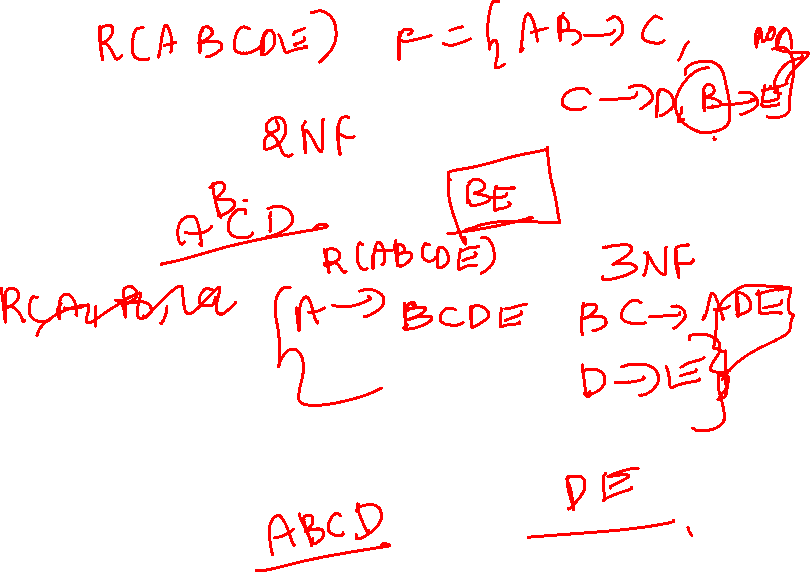 R(A B C D E) F = { AB → C,
C → D, B → E }
2NF
ABCD
BE
R(ABCDE)
3NF
{ A → BCDE BC → ADE
D → E }
ABCD
DE